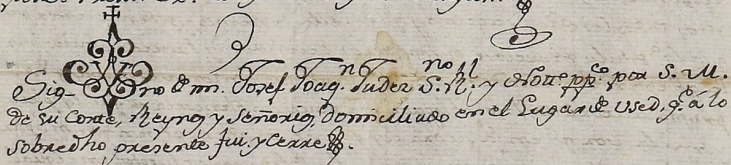 Sig no de mi Josef Joaqn Tudez S.no Rl. y Notto ppco por S. M.
de su Corte, Reyno, y Señorio, domiciliado en el Lugar de Used, q.e á lo
sobredho presente fui. y Cerre.